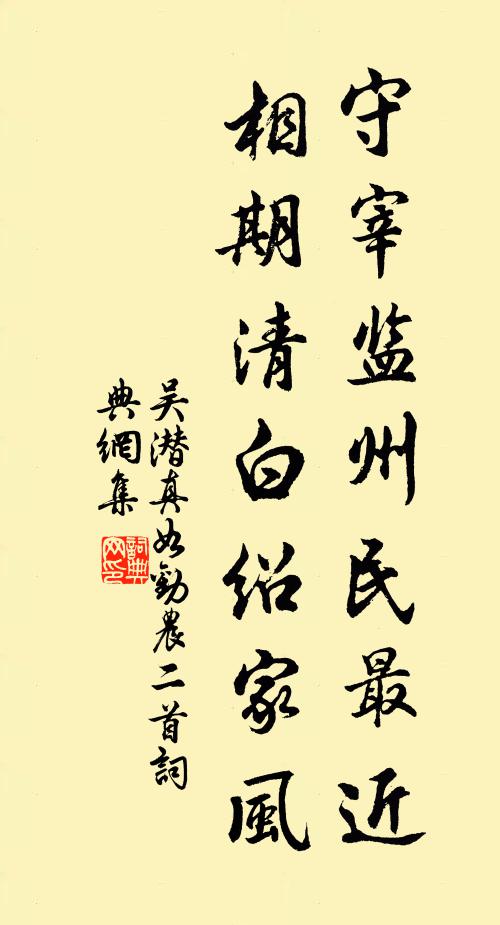 守宰监州民最近
相期清白绍家風
吴潜真如勸農二首詞
典網集
詞典網印